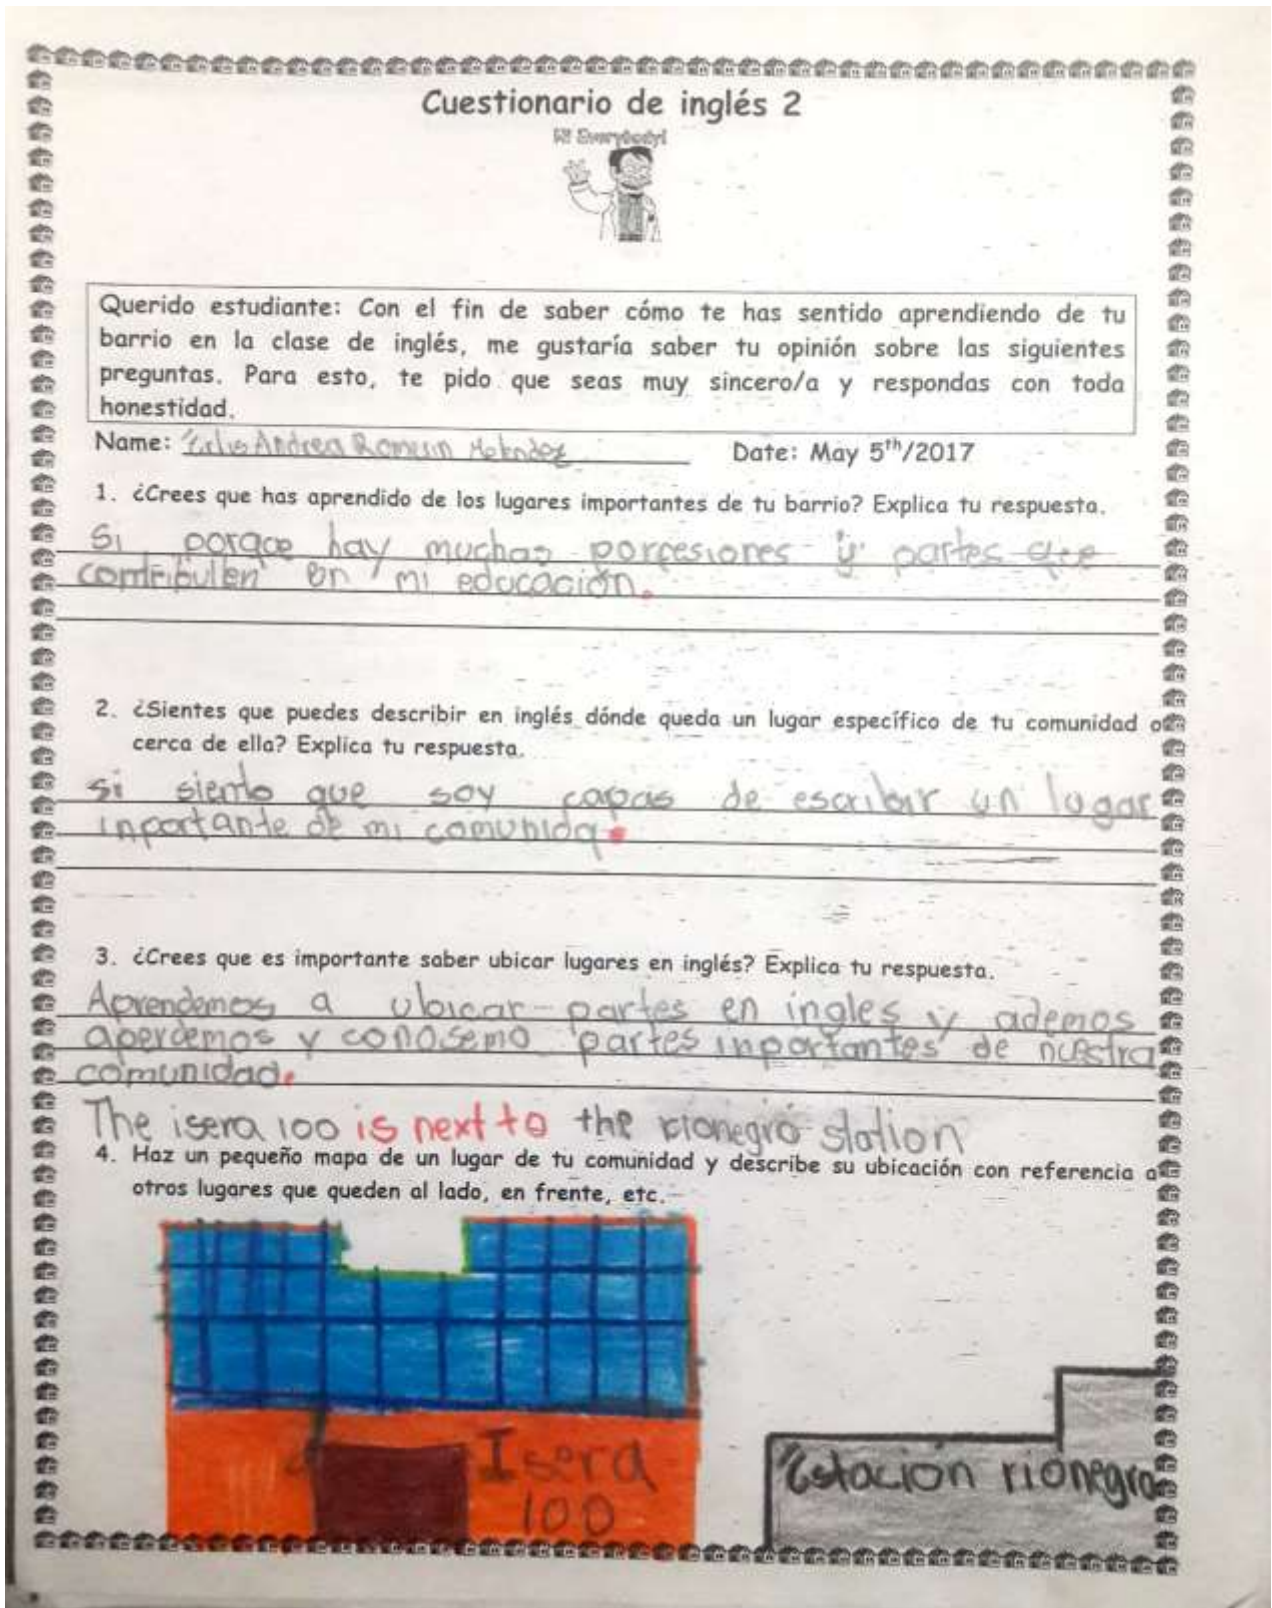 Cuestionario de inglés 2
Hi Everybody!
Querido estudiante: Con el fin de saber cómo te has sentido aprendiendo de tu
barrio en la clase de inglés, me gustaría saber tu opinión sobre las siguientes
preguntas. Para esto, te pido que seas muy sincero/a y respondas con toda
honestidad.
Name: Andrea Date: May 5th/2017
1. ¿Crees que has aprendido de los lugares importantes de tu barrio? Explica tu respuesta.
Si porqoe hay muchas porfesiones y partes que
contribullen en mi educación.
2. ¿Sientes que puedes describir en inglés dónde queda un lugar específico de tu comunidad o
cerca de ella? Explica tu respuesta.
si siento que soy capas de escribir un lugar
inportante de mi comunida.
3. ¿Crees que es importante saber ubicar lugares en inglés? Explica tu respuesta.
Aprendemos a ubicar partes en ingles y ademos
aperdemos y conosemo partes inportantes de nuestra
comunidad.
The isera 100 is next to the rionegro station
4. Haz un pequeño mapa de un lugar de tu comunidad y describe su ubicación con referencia a
otros lugares que queden al lado, en frente, etc.
Isera
100
Estación rionegro